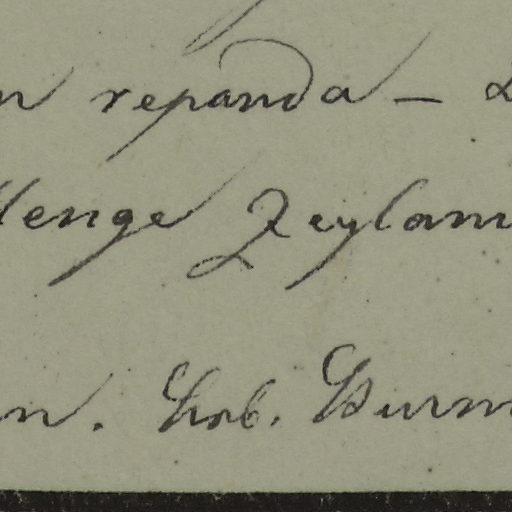 n repanda —
lenge Zeylani
n. Herb. Burm